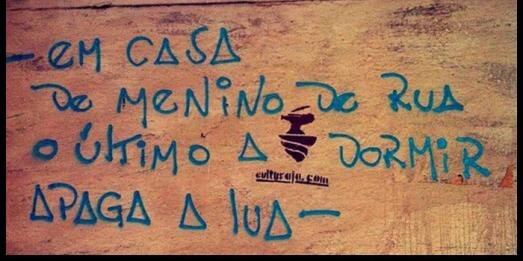 - EM CASA
De MENINO De RUA
O ÚLTIMO A DORMIR
culturaja.com
APAGA A LUA -